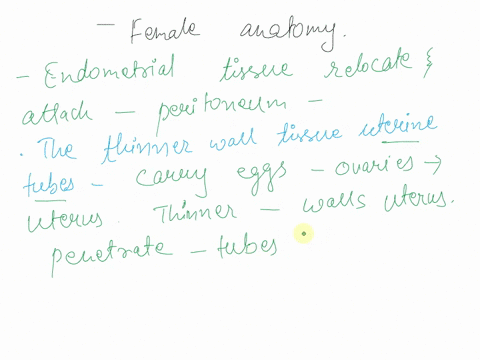 - Female anatomy.
- Endometrial tissue relocate &
attach - peritoneum -
. The thinner wall tissue uterine
tubes - carry eggs - ovaries →
uterus. Thinner - walls uterus.
penetrate - tubes